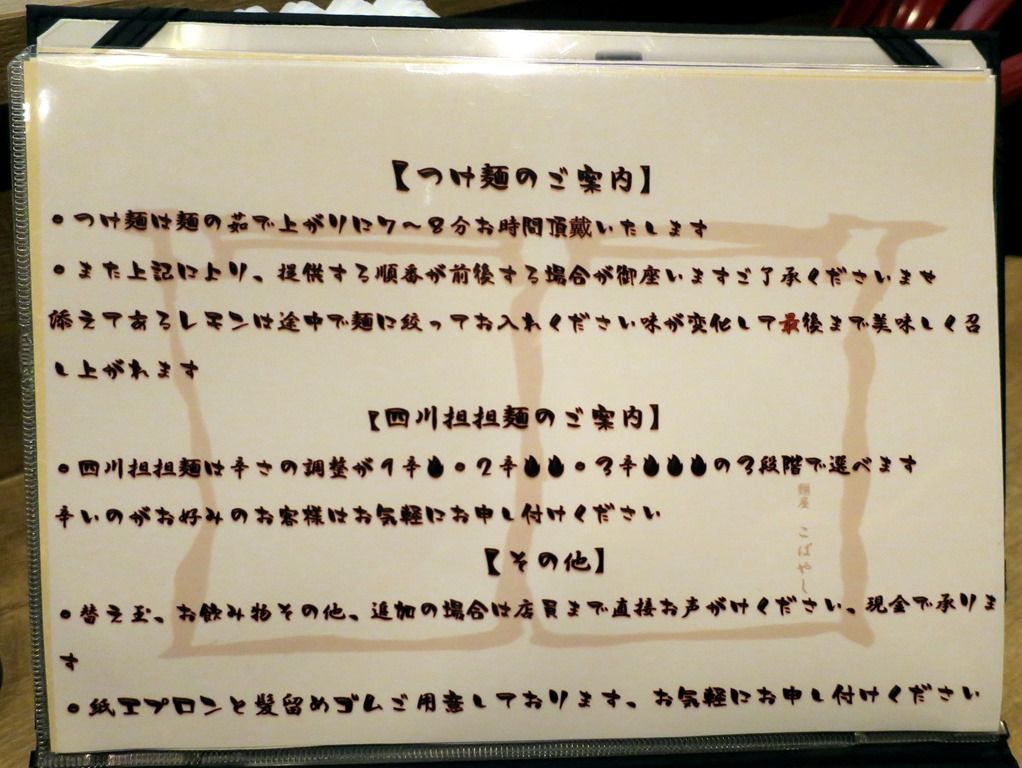 【つけ麺のご案内】
・つけ麺は麺の茹で上がりに7〜8分お時間頂戴いたします
・また上記により、提供する順番が前後する場合が御座いますご了承くださいませ
添えてあるレモンは途中で麺に絞ってお入れください味が変化して最後まで美味しく召
し上がれます
【四川担担麺のご案内】
・四川担担麺は辛さの調整が1辛・2辛・3辛の3段階で選べます
辛いのがお好みのお客様はお気軽にお申し付けください
麺屋 こばやし
【その他】
・替え玉、お飲み物その他、追加の場合は店員まで直接お声がけください、現金で承りま
す
・紙エプロンと髪留めゴムご用意しております、お気軽にお申し付けください